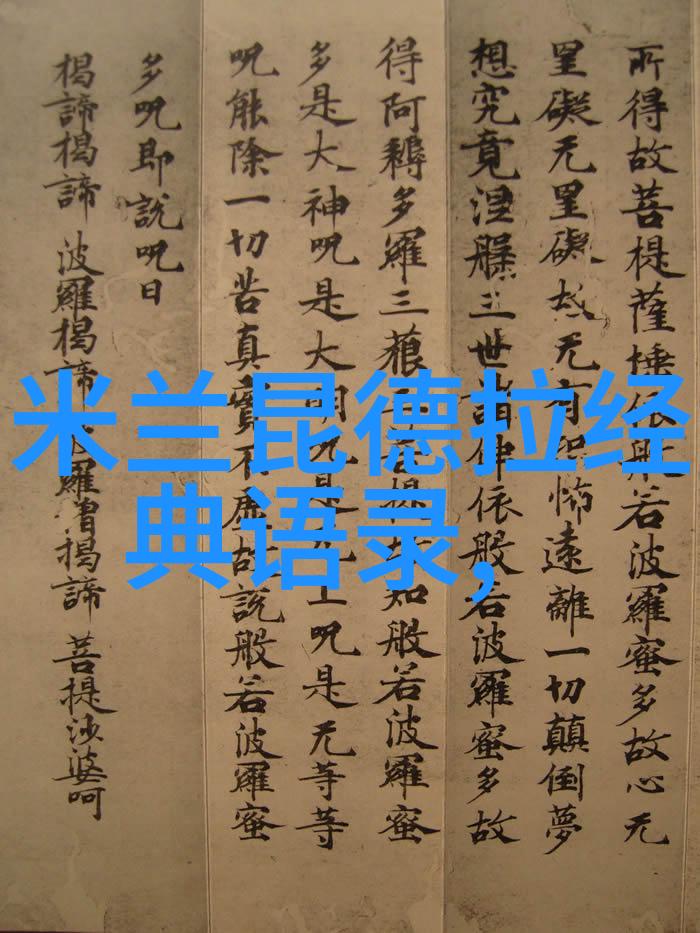 米兰昆德拉经
典语录,
所得故菩提薩埵依般若波羅蜜多故心无
罣礙无罣礙故无有恐怖遠離一切顛倒夢
想究竟涅槃三世諸佛依般若波羅蜜多故
得阿耨多羅三藐三菩提故知般若波羅蜜
多是大神呪是大明呪是无上呪是无等等
呪能除一切苦真實不虛故說般若波羅蜜
多呪即說呪曰
揭諦揭諦 波羅揭諦 波羅僧揭諦 菩提沙婆呵